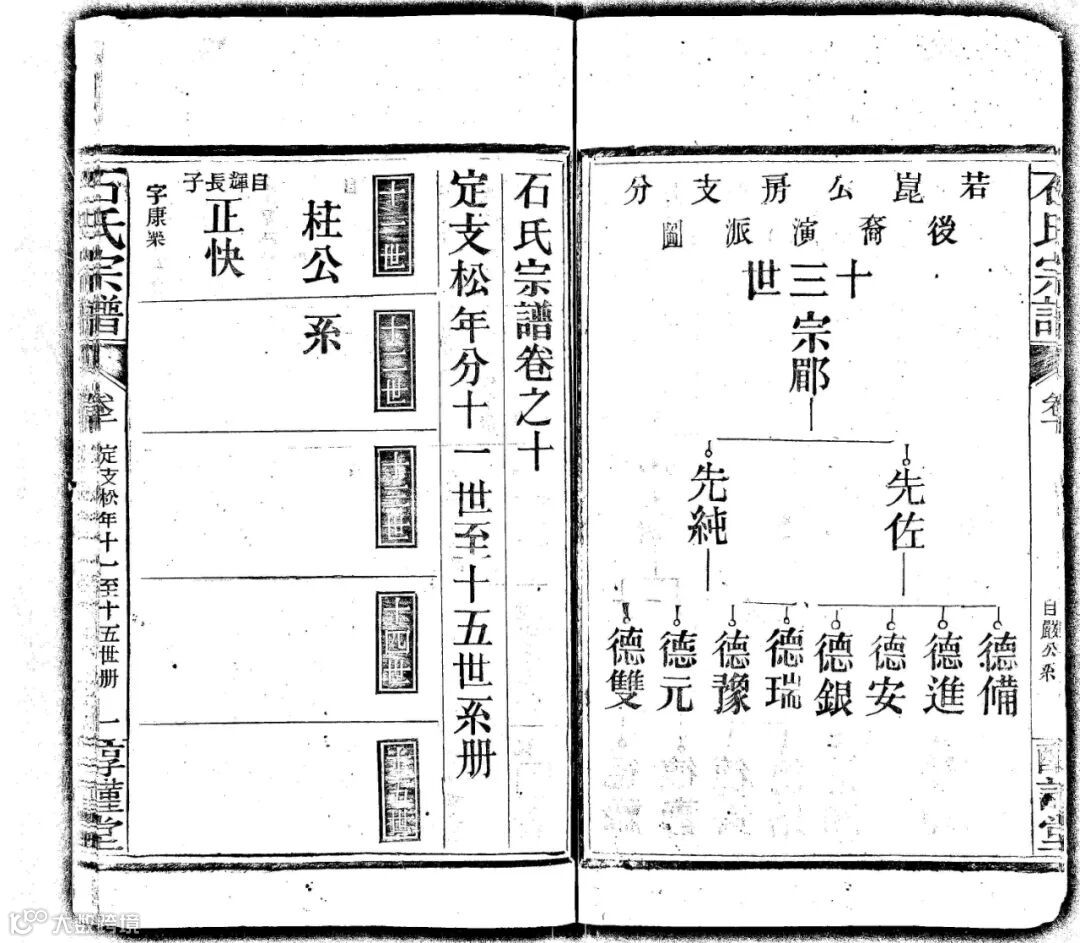 石氏宗譜
卷十
自嚴公系
若崑公房支分
後裔演派圖
十三世
宗郿
先佐
先純
德備
德進
德安
德銀
德瑞
德豫
德元
德雙
石氏宗譜卷之十
定支松年分十一世至十五世系册
十二世
十三世
十四世
十五世
柱公系
自輝長子
正快
字康業
石氏宗譜
卷十
定支松年十一至十五世册
一
惇謹堂
大数跨境